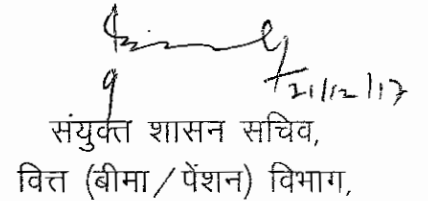 21/12/17
संयुक्त शासन सचिव,
वित्त (बीमा/पेंशन) विभाग,